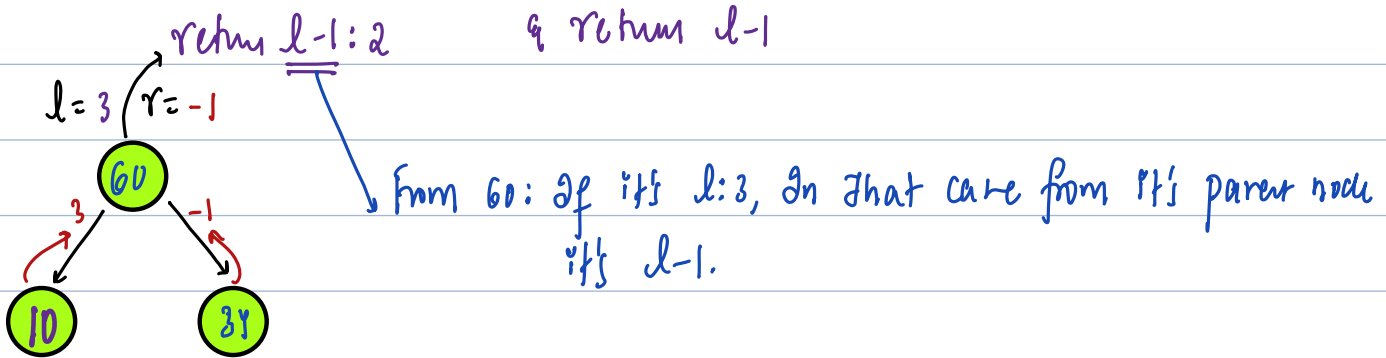 return l-1:2 & return l-1
l=3 r=-1
60
3 -1
From 60: If it's l:3, In that case from it's parent node
it's l-1.
10 34